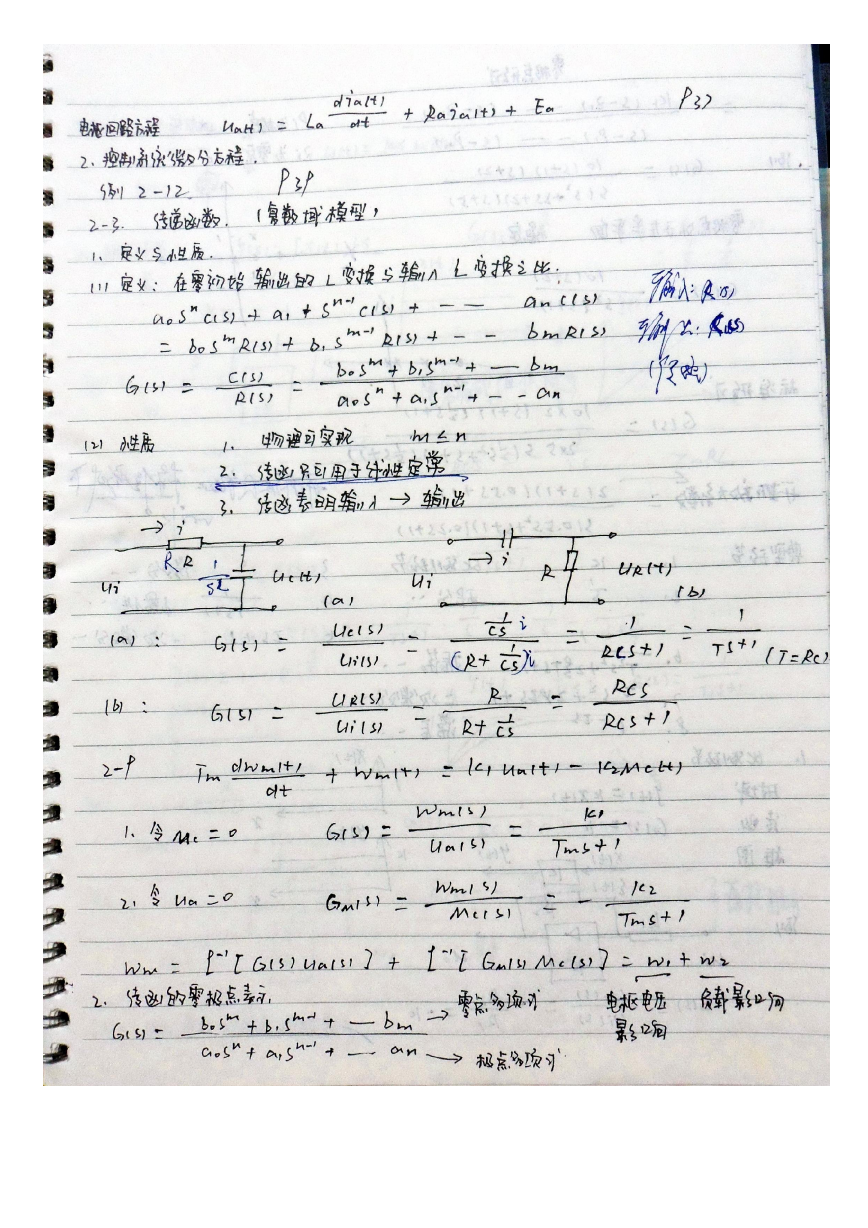 电枢回路方程 Ua(t) = La dia(t)/dt + Raia(t) + Ea P37
2. 控制系统微分方程.
例 2-12. P39
2-3. 传递函数. (复数域模型)
1. 定义与性质.
(1) 定义: 在零初始 输出的 L 变换与输入 L 变换之比.
a0S^n C(S) + a1 S^n-1 C(S) + -- an C(S) 输入: R(S)
= b0S^m R(S) + b1 S^m-1 R(S) + - - bm R(S) 输出:
G(S) = C(S)/R(S) = b0S^m + b1S^m-1 + — bm / a0S^n + a1S^n-1 + - - an
(2) 性质 1. 物理可实现 m ≤ n
2. 传函只可用于线性定常
3. 传函表明输入 → 输出
→ i → i
R R 1/SC Uc(t) Ui R UR(t)
Ui (a) (b)
(a): G(S) = Uc(S)/Ui(S) = 1/CS i / (R + 1/CS)i = 1/RCS+1 = 1/TS+1 (T=RC)
(b): G(S) = UR(S)/Ui(S) = R / R + 1/CS = RCS/RCS+1
2-9 Tm dwm(t)/dt + wm(t) = K1 Ua(t) - K2Mc(t)
1. 令 Mc = 0 G(S) = Wm(S)/Ua(S) = K1/TmS+1
2. 令 Ua = 0 Gm(S) = Wm(S)/Mc(S) = - K2/TmS+1
wm = L^-1[G(S)Ua(S)] + L^-1[Gm(S)Mc(S)] = w1 + w2
2. 传函的零极点表示. → 零点多项式 电枢电压 负载影响
G(S) = b0S^m + b1S^m-1 + — bm / a0S^n + a1S^n-1 + — an 影响
→ 极点多项式